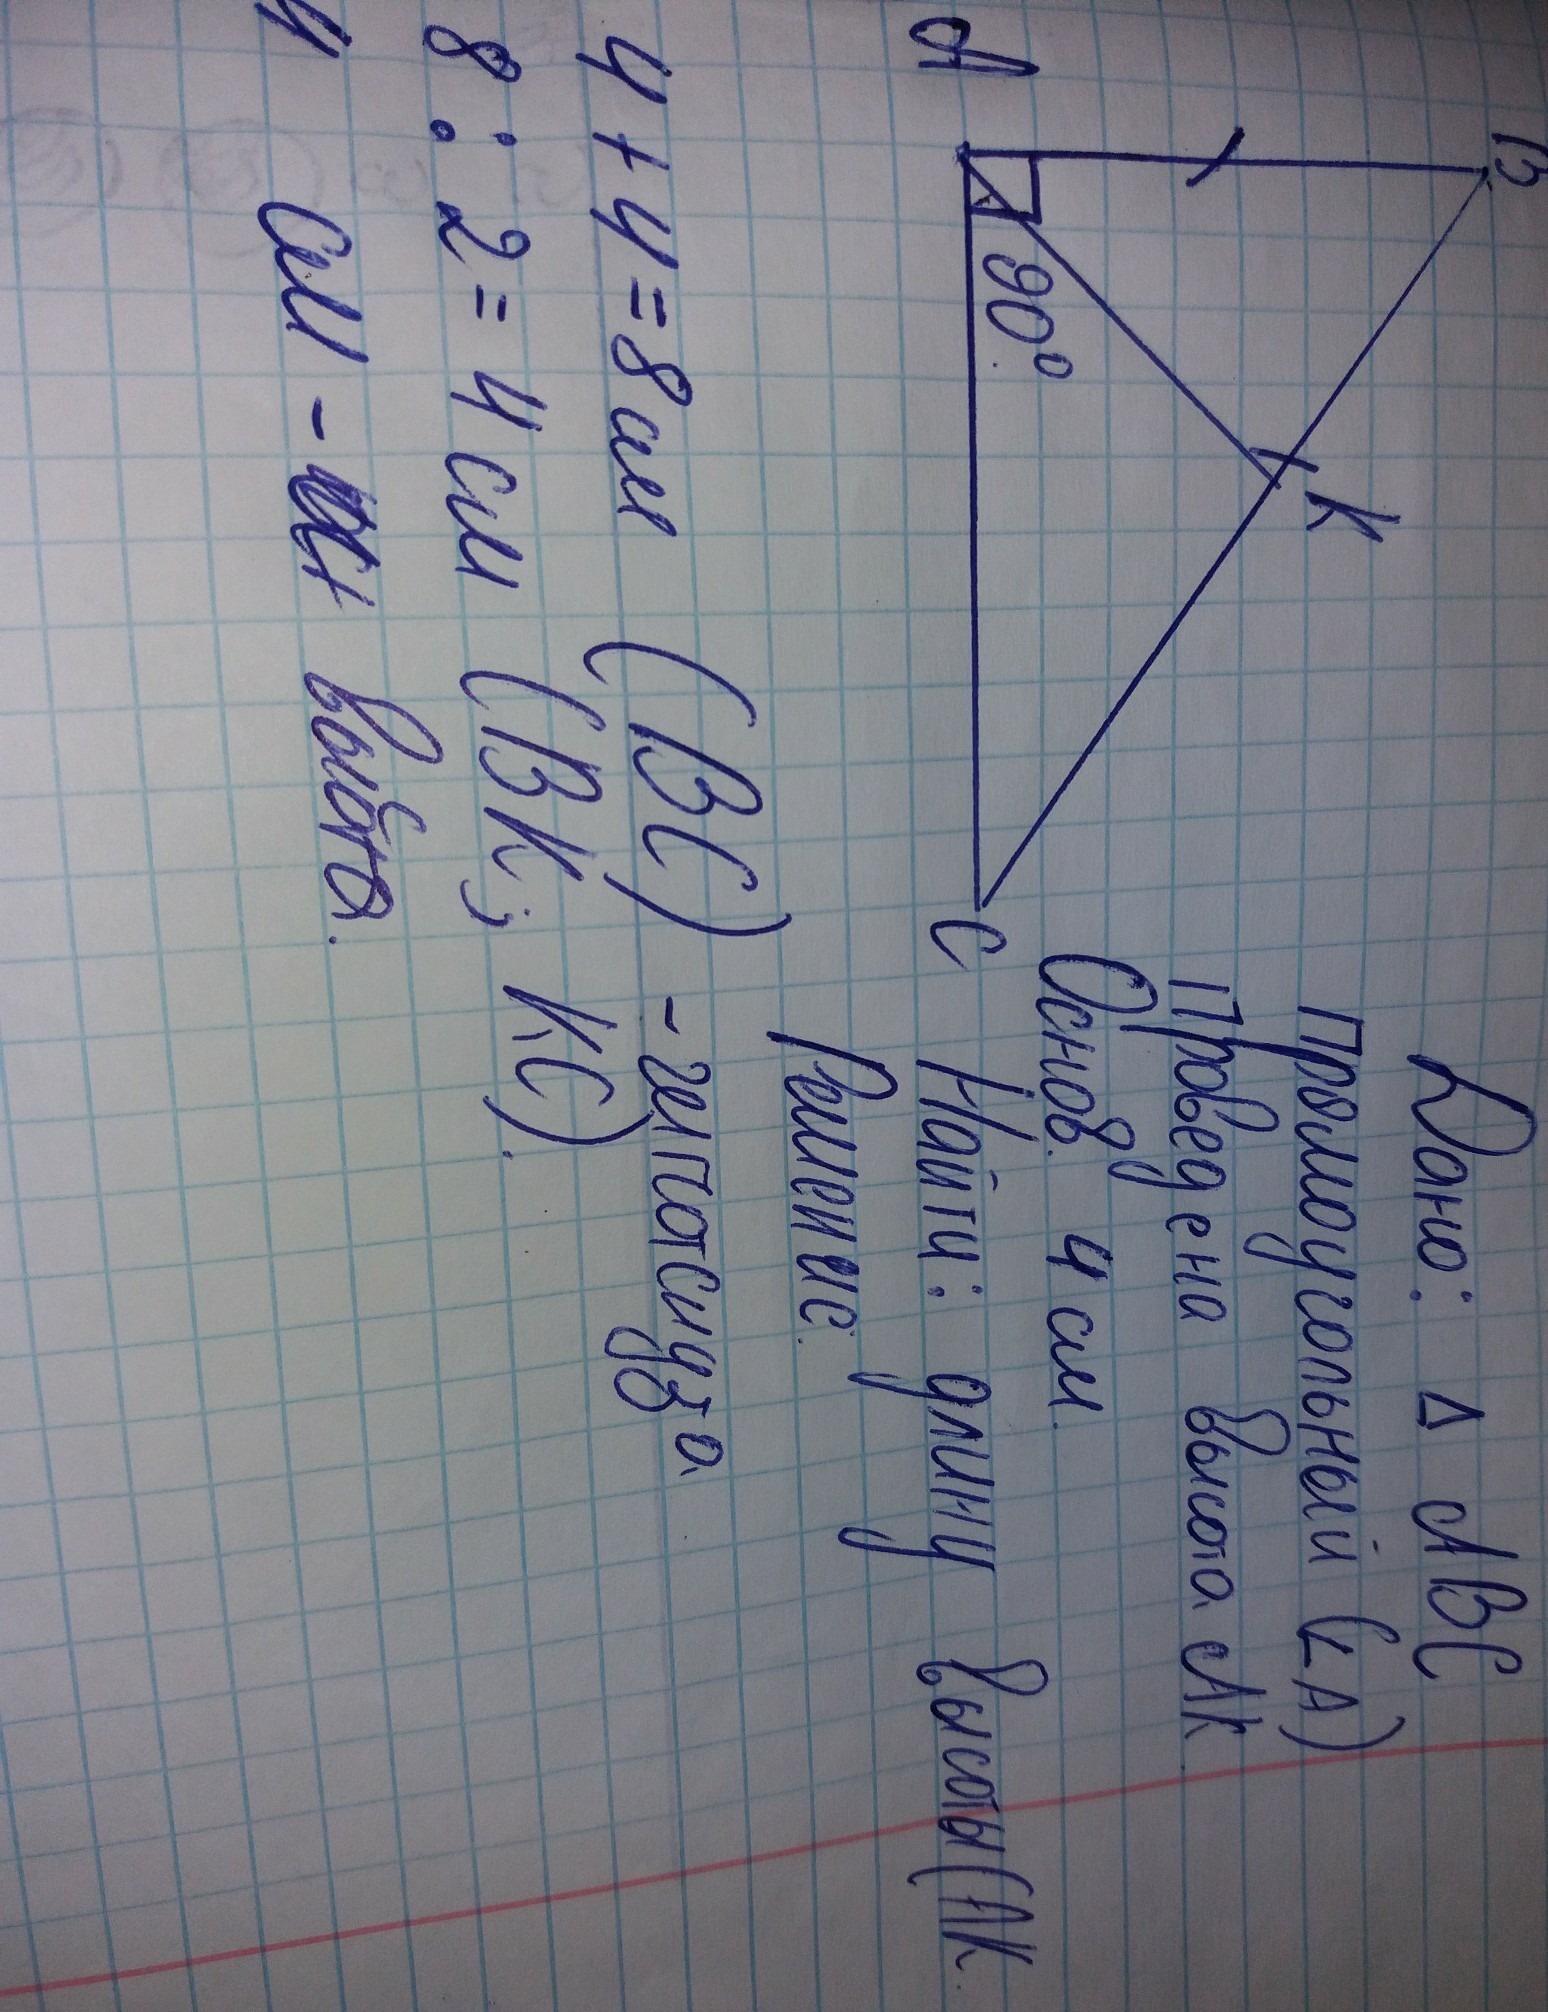 B
Дано: Δ ABC
Прямоугольный (∟A)
K
Проведена высота AK
Основ. 4 см.
90°
A
C
Найти: длину высоты (AK.
Решение.
4 + 4 = 8 см (BC) - гепотенуза
8 : 2 = 4 см (BK; KC).
4 см -